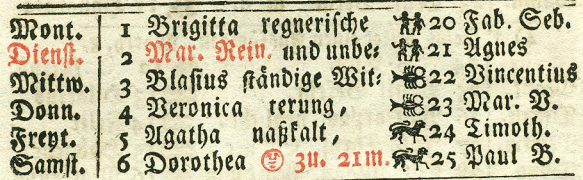 Mont. 1 Brigitta regnerische 20 Fab. Seb.
Dienst. 2 Mar. Rein. und unbe⸗ 21 Agnes
Mittw. 3 Blasius ständige Wit⸗ 22 Vincentius
Donn. 4 Veronica terung, 23 Mar. V.
Freyt. 5 Agatha naßkalt, 24 Timoth.
Samst. 6 Dorothea 3u. 21m. 25 Paul B.